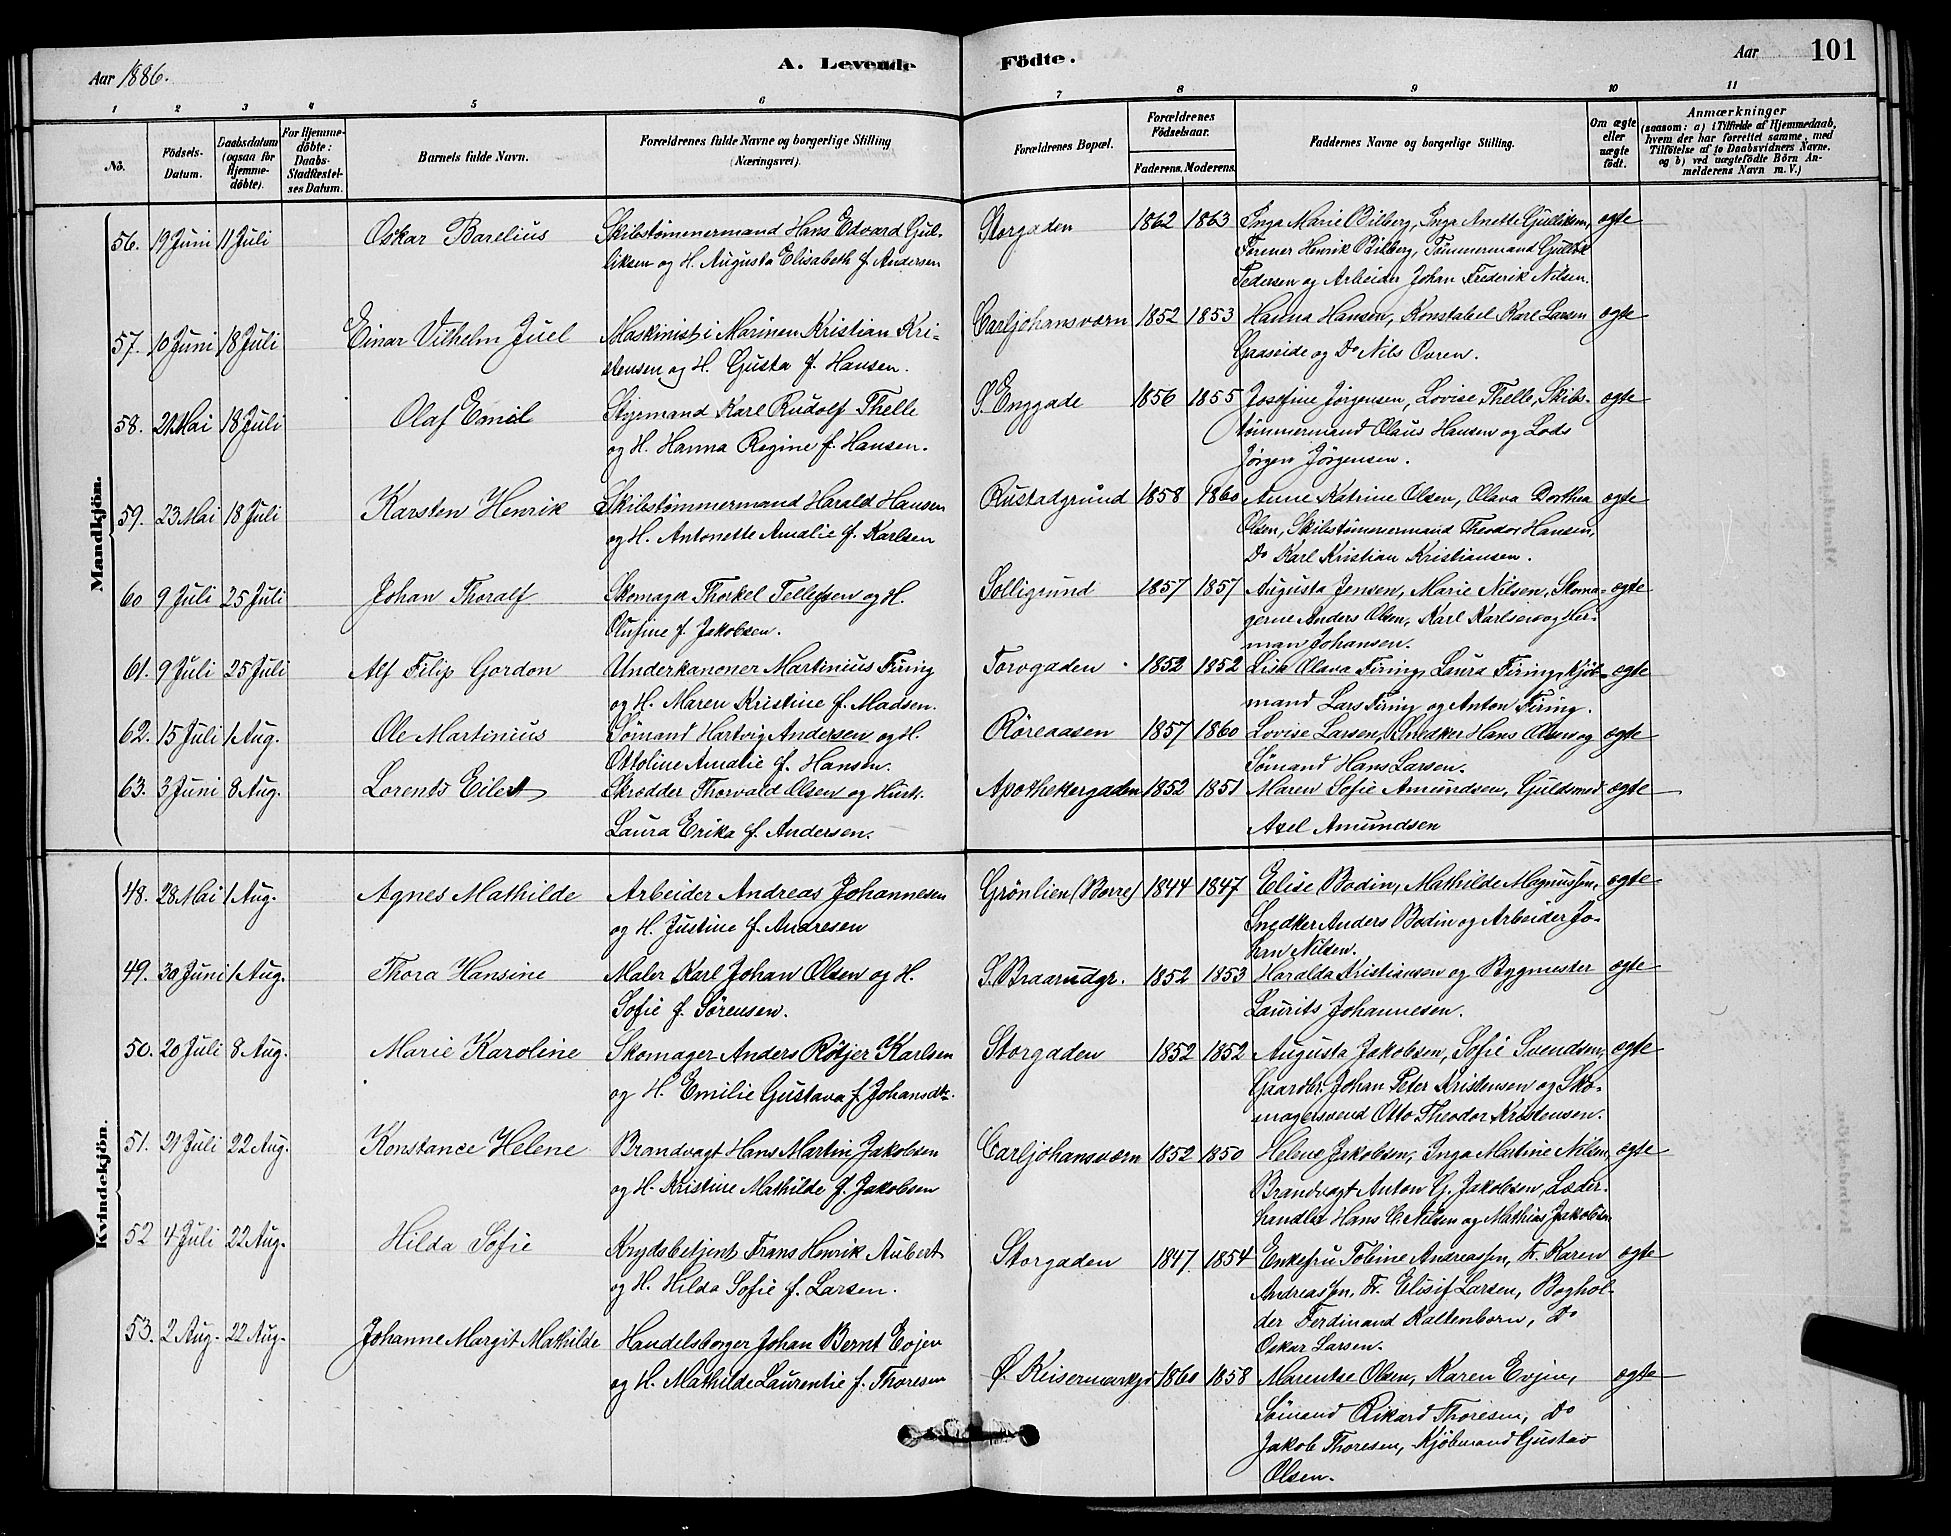 Aar 1886.
A. Levende Födte.
Aar 101
1 2 3 4 5 6 7 8 9 10 11
No.
Födsels-Datum.
Daabsdatum (ogsaa for Hjemme-döbte).
For Hjemme-döbte: Daabs-Stadfæstel-ses Datum.
Barnets fulde Navn.
Forældrenes fulde Navne og borgerlige Stilling (Næringsvei).
Forældrenes Bopæl.
Forældrenes Födselsaar.
Faderens. Moderens.
Faddernes Navne og borgerlige Stilling.
Om ægte eller uægte födt.
Anmærkninger
(saasom: a) i Tilfælde af Hjemmedaab, hvem der har forrettet samme, med Tilföielse af to Daabsvidners Navne, og b) ved uægtefödte Börn An-melderens Navn m. V.)
Mandkjön.
56. 19 Juni 11 Juli Oskar Barelius Skibstømmermand Hans Edvard Gul- Storgaden 1862 1863 Inga Marie Bilberg, Inga Anette Gulliksen, ægte
liksen og H. Augusta Elisabeth f. Andersen Former Henrik Bilberg, Tømmermand
Pedersen og Arbeider Johan Frederik Nilsen.
57. 10 Juni 18 Juli Einar Vilhelm Juel Maskinist i Marinen Kristian Kri- Carljohansværn 1852 1853 Hanna Hansen, Konstabel Karl Larsen ægte
stensen og H. Gusta f. Hansen. Gaaseide og Do Nils Ovren.
58. 21 Mai 18 Juli Olaf Emil Styrmand Karl Rudolf Thelle S. Enggade 1856 1855 Josefine Jørgensen, Lovise Thelle, Skibs- ægte
og H. Hanna Regine f. Hansen. tømmermand Olaus Hansen og Lods
Jørgen Jørgensen.
59. 23 Mai 18 Juli Karsten Henrik Skibstømmermand Harald Hansen Rustadgrund 1858 1860 Anne Katrine Olsen, Olava Dorthea ægte
og H. Antonette Amalie f. Karlsen Olsen, Skibstømmermand Theodor Hansen,
Do Karl Kristian Kristiansen.
60 9 Juli 25 Juli Johan Thoralf Skomager Thorkel Tellefsen og H. Solligrund 1857 1857 Augusta Jensen, Marie Nilsen, Skoma- ægte
Olufine f. Jakobsen. gerne Anders Olsen, Karl Karlsen og Her-
man Johansen.
61. 9 Juli 25 Juli Alf Filip Gordon Underkanoner Martinius Firing Torvgaden 1852 1852 Lisa Olava Firing, Laura Firing, Kjøb- ægte
og H. Maren Kristine f. Madsen. mand Lars Firing og Anton Firing.
62. 15 Juli 1 Aug. Ole Martinius Sømand Hartvig Andersen og H. Røreaasen 1857 1860 Lovise Larsen, Snedker Hans Olsen og ægte
Ottoline Amalie f. Hansen. Sømand Hans Larsen.
63. 3 Juni 8 Aug. Lorents Eilert Skrædder Thorvald Olsen og Hust. Apothekergaden 1852 1851 Maren Sofie Amundsen, Guldsmed ægte
Laura Erika f. Andersen. Axel Amundsen
Kvindekjön.
48. 28 Mai 1 Aug. Agnes Mathilde Arbeider Andreas Johannesen Grønlien (Borre) 1844 1847 Elise Bodin, Mathilde Magnussen, ægte
og H. Justine f. Andresen Snedker Anders Bodin og Arbeider Jo-
han Nilsen.
49. 30 Juni 1 Aug. Thora Hansine Maler Karl Johan Olsen og H. S. Braarudgr. 1852 1853 Haralda Kristiansen og Bygmester ægte
Sofie f. Sørensen. Laurits Johannesen.
50. 20 Juli 8 Aug. Marie Karoline Skomager Anders Røtjer Karlsen Storgaden 1852 1852 Augusta Jakobsen, Sofie Svendsen, ægte
og H. Emilie Gustava f. Johansdtr. Gaardbr. Johan Peter Kristensen og Sko-
magersvend Otto Theodor Kristensen.
51. 21 Juli 22 Aug. Konstance Helene Brandvagt Hans Martin Jakobsen Carljohansværn 1852 1850 Helene Jakobsen, Inga Martine Nilsen, ægte
og H. Kristine Mathilde f. Jakobsen Brandvagt Anton G. Jakobsen, Læder-
handler Hans C. Nilsen og Mathias Jakobsen
52 4 Juli 22 Aug. Hilda Sofie Krydsbetjent Frans Henrik Aubert Storgaden 1847 1854 Enkefru Tobine Andreassen, Fr. Karen ægte
og H. Hilda Sofie f. Larsen. Andreassen, Fr. Elisif Larsen, Boghol-
der Ferdinand Kaltenborn, Do
Oskar Larsen.
53. 2 Aug. 22 Aug. Johanne Margit Mathilde Handelsborger Johan Bernt Evjen Ø. Keisermarkgd 1860 1858 Marentse Olsen, Karen Evjen, ægte
og H. Mathilde Laurentie f. Thoresen Sømand Rikard Thoresen, Do
Jakob Thoresen, Kjøbmand Gustav
Olsen.